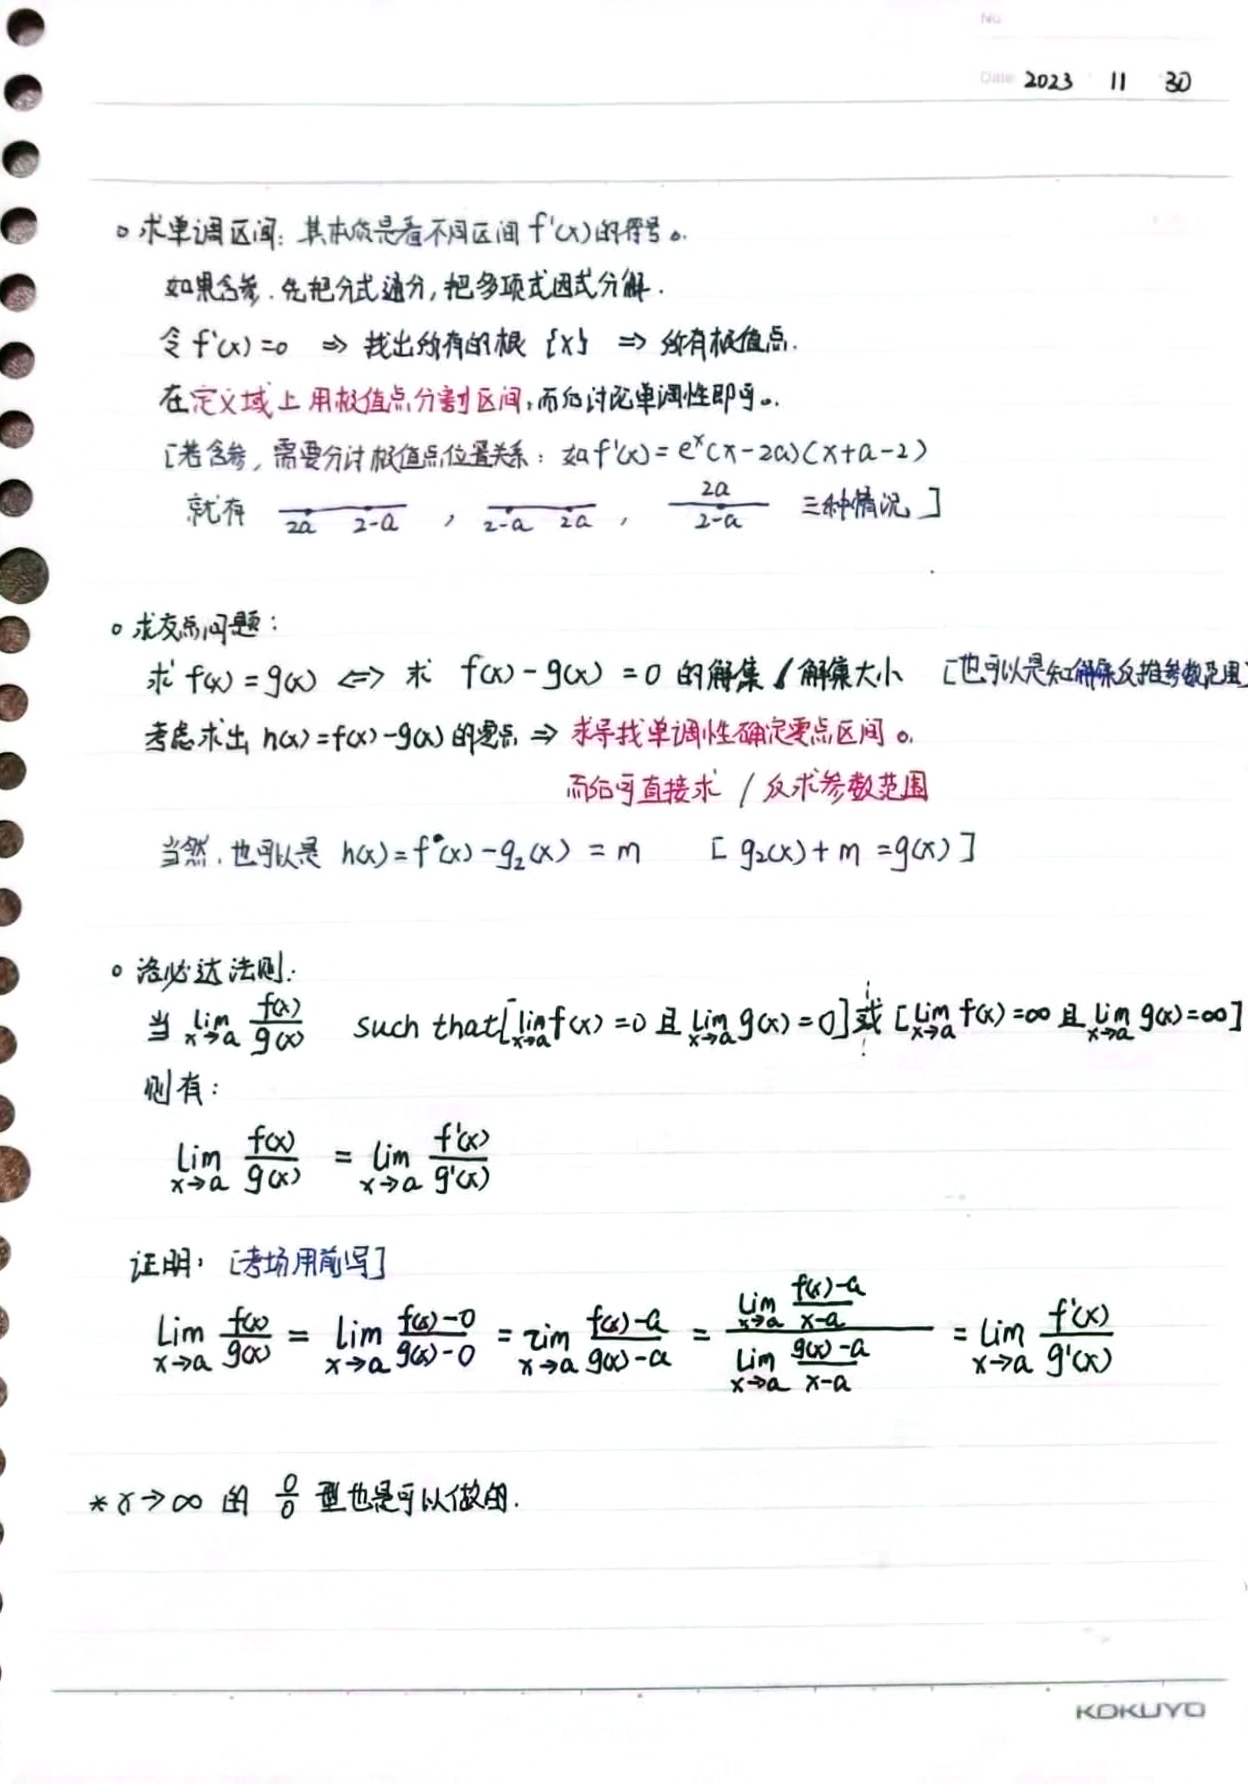 No.
Date 2023 11 30
求单调区间: 其本质是看不同区间 f'(x)的符号。
如果含参, 先把分式通分, 把多项式因式分解.
令 f'(x)=0 ⇒ 找出所有的根 {x} ⇒ 所有极值点.
在定义域上用极值点分割区间,而后讨论单调性即可。
[若含参, 需要分讨极值点位置关系: 如 f'(x)=e^x(x-2a)(x+a-2)
就有 2a 2-a , 2-a 2a , 2a 2-a 三种情况]
求交点问题:
求 f(x)=g(x) ⇔ 求 f(x)-g(x)=0 的解集/解集大小 [也可以是知解集反推参数范围]
考虑求出 h(x)=f(x)-g(x)的零点 ⇒ 求导找单调性确定零点区间。
而后可直接求 / 反求参数范围
当然, 也可以是 h(x)=f(x)-g₂(x)=m [g₂(x)+m=g(x)]
洛必达法则:
当 lim x→a f(x)/g(x) such that [lim x→a f(x)=0 且 lim x→a g(x)=0] 或 [lim x→a f(x)=∞ 且 lim x→a g(x)=∞]
则有:
lim x→a f(x)/g(x) = lim x→a f'(x)/g'(x)
证明: [考场用前写]
lim x→a f(x)/g(x) = lim x→a (f(x)-0)/(g(x)-0) = lim x→a (f(x)-a)/(g(x)-a) = (lim x→a (f(x)-a)/(x-a))/(lim x→a (g(x)-a)/(x-a)) = lim x→a f'(x)/g'(x)
* x→∞ 的 0/0 型也是可以做的.
KOKUYO